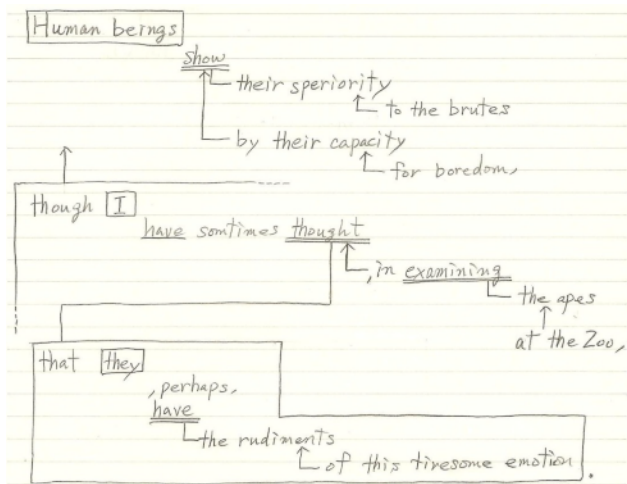 Human beings
show
their speriority
to the brutes
by their capacity
for boredom,
though I
have somtimes thought
, in examining
the apes
at the Zoo,
that they
, perhaps,
have
the rudiments
of this tiresome emotion.